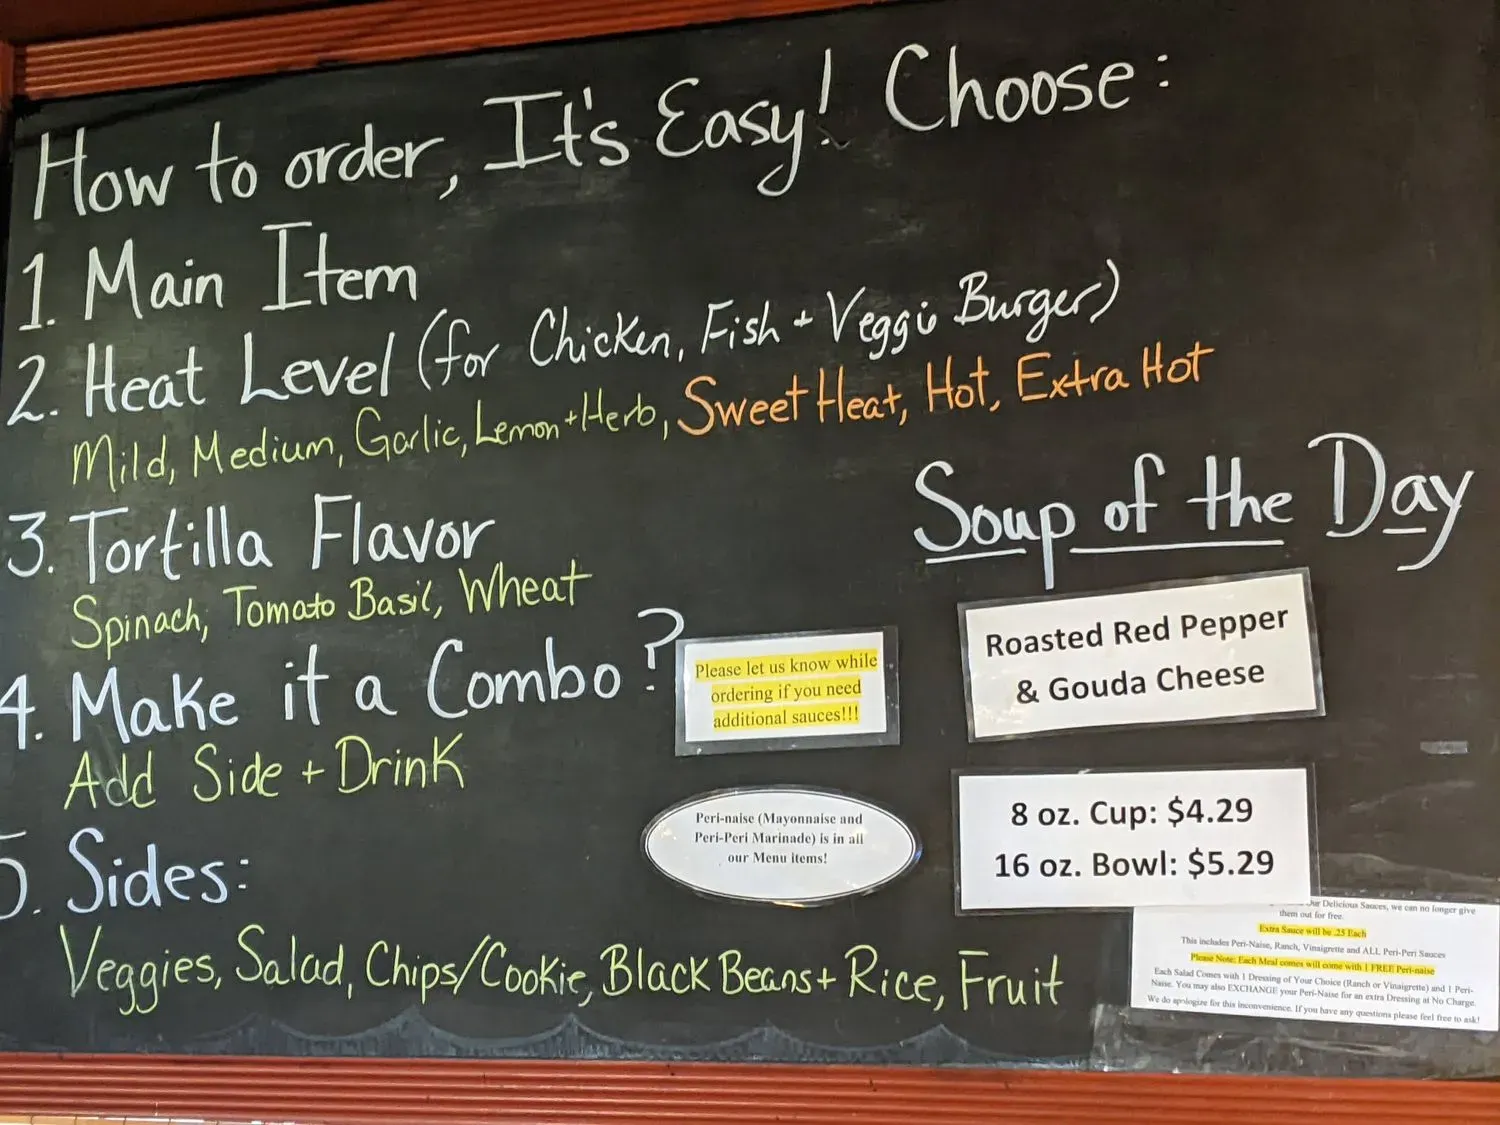 How to order, It's Easy! Choose:
1. Main Item
2. Heat Level (for Chicken, Fish + Veggie Burger)
Mild, Medium, Garlic, Lemon + Herb, Sweet Heat, Hot, Extra Hot
3. Tortilla Flavor
Spinach, Tomato Basil, Wheat
4. Make it a Combo?
Add Side + Drink
5. Sides:
Veggies, Salad, Chips/Cookie, Black Beans + Rice, Fruit
Please let us know while
ordering if you need
additional sauces!!!
Peri-naise (Mayonnaise and
Peri-Peri Marinade) is in all
our Menu items!
Soup of the Day
Roasted Red Pepper
& Gouda Cheese
8 oz. Cup: $4.29
16 oz. Bowl: $5.29
Our Delicious Sauces, we can no longer give
them out for free.
Extra Sauce will be .25 Each
This includes Peri-Naise, Ranch, Vinaigrette and ALL Peri-Peri Sauces
Please Note: Each Meal comes will come with 1 FREE Peri-naise
Each Salad Comes with 1 Dressing of Your Choice (Ranch or Vinaigrette) and 1 Peri-
Naise. You may also EXCHANGE your Peri-Naise for an extra Dressing at No Charge.
We do apologize for this inconvenience. If you have any questions please feel free to ask!